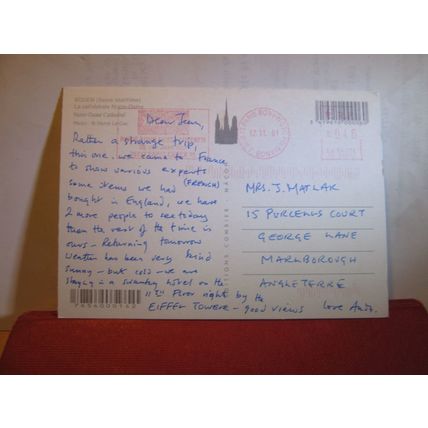 ROUEN (Seine maritime)
La cathédrale Notre-Dame
Notre-Dame Cathedral
12.11.01
046
Dear Jean,
Rather a strange trip,
this one, we came to France
to show various experts
(FRENCH)
some items we had
bought in England, we have
2 more people to see today
then the rest of the time is
ours - Returning tomorrow
weather has been very kind
sunny - but cold - we are
staying in a swanky hotel on the
11th Floor right by the
EIFFEL TOWER - good views love
EDITIONS COMBIER - MACON
MRS. J. MATLAK
15 PURCELLS COURT
GEORGE LANE
MARLBOROUGH
ANGLETERRE